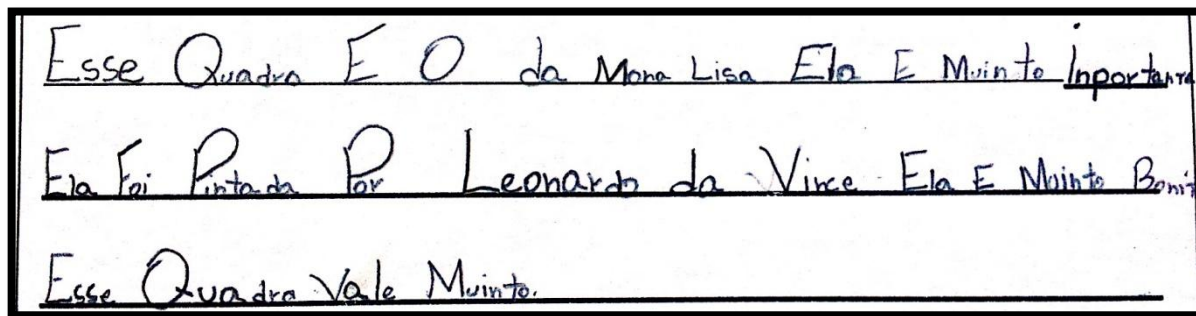 Esse Quadro E O da Mona Lisa Ela E Muinto Inportante
Ela Foi Pintada Por Leonardo da Vince Ela E Muinto Bonit
Esse Quadro Vale Muinto.